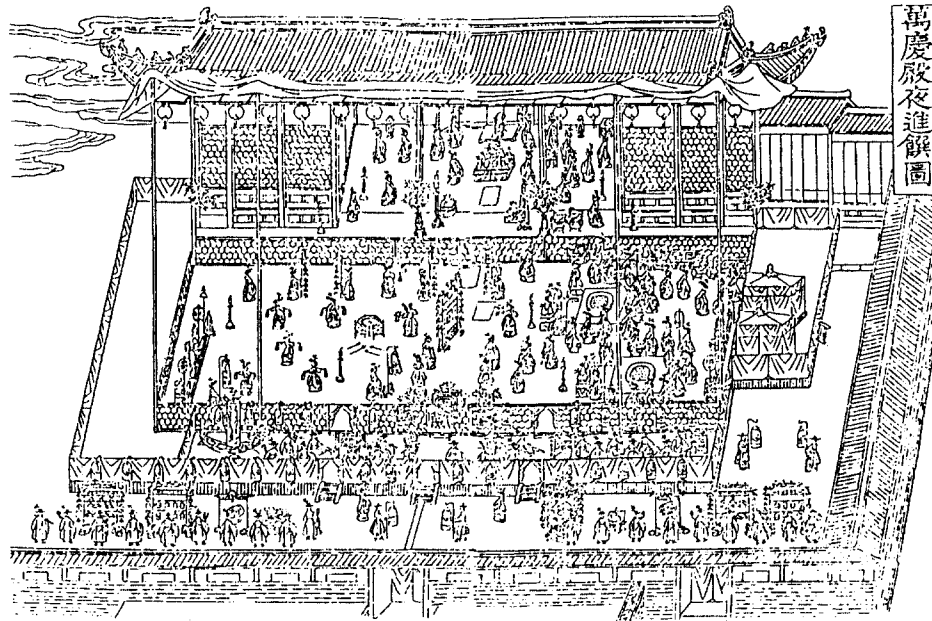 萬慶殿夜進饌圖